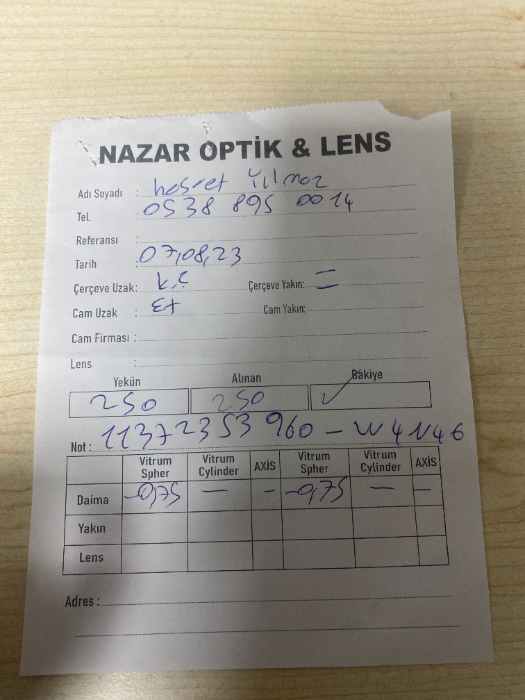 NAZAR OPTİK & LENS
Adı Soyadı : hasret Yılmaz
Tel. : 0538 895 0014
Referansı :
Tarih : 07,08,23
Çerçeve Uzak: k.ç Çerçeve Yakın: =
Cam Uzak : Ex Cam Yakın:
Cam Firması :
Lens :
Yekün Alınan Bâkiye
250 250 ✓
Not : 11372353960 - W4N46
Vitrum Spher Vitrum Cylinder AXİS Vitrum Spher Vitrum Cylinder AXİS
Daima -0,75 — - -0,75 — -
Yakın
Lens
Adres :